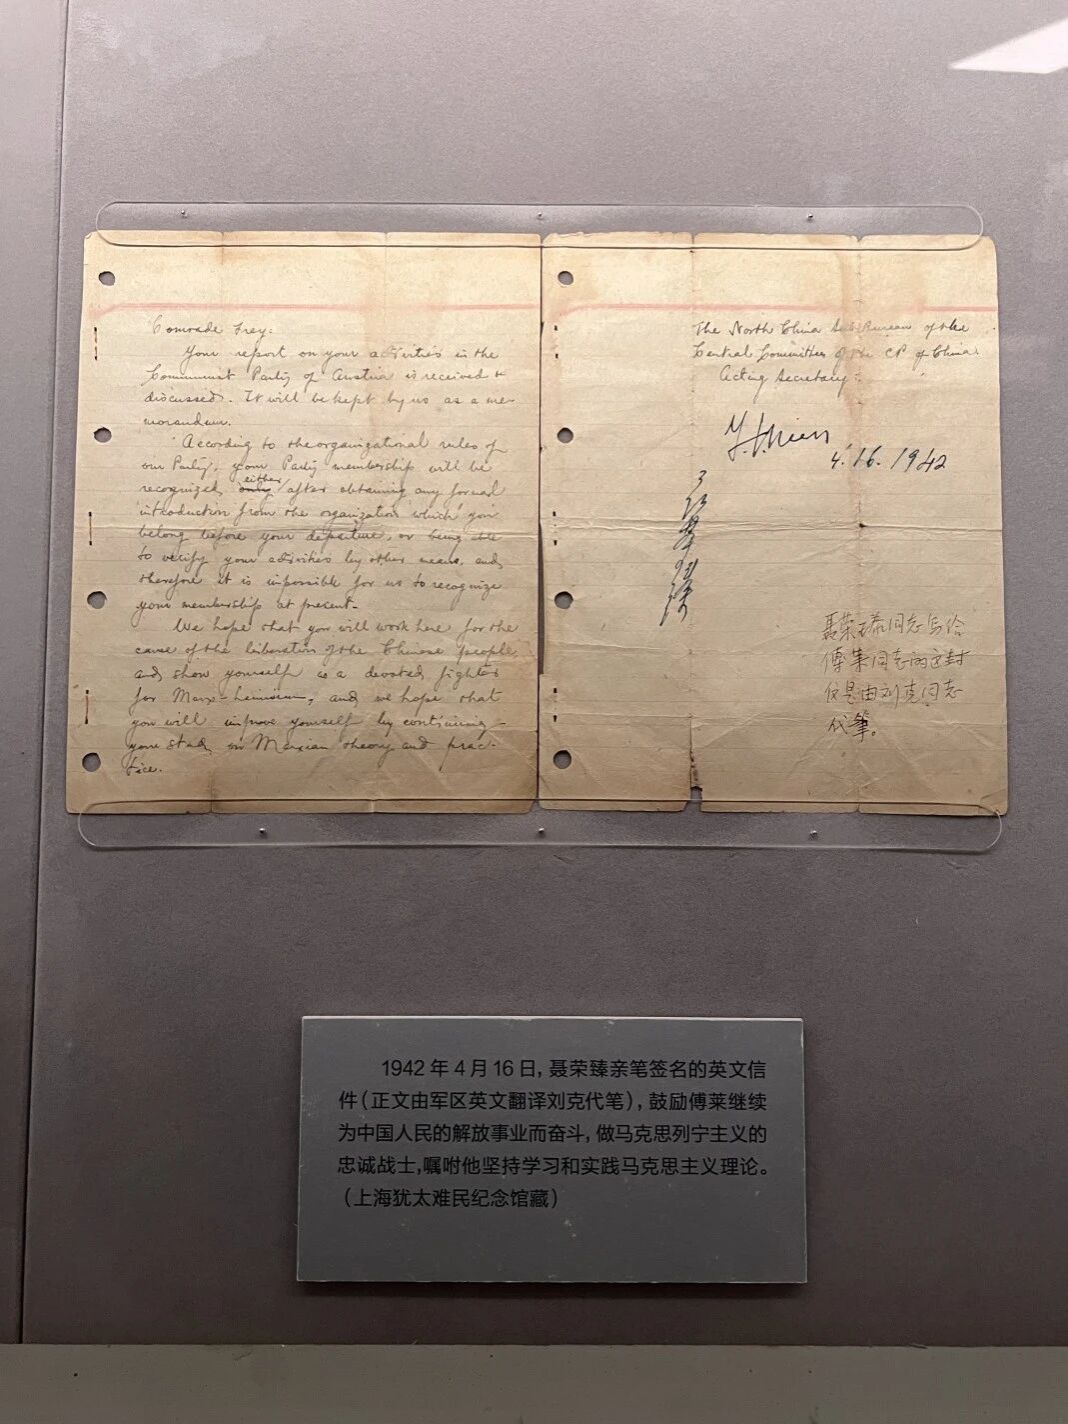 Comrade Frey:
Your report on your activities in the
Communist Party of Austria is received &
discussed. It will be kept by us as a me-
morandum.
According to the organizational rules of
our Party, your Party membership will be
recognized only either after obtaining any formal
introduction from the organization which you
belong before your departure, or being able
to verify your activities by other means, and
therefore it is impossible for us to recognize
your membership at present.
We hope that you will work here for the
cause of the liberation of the Chinese people
and show yourself as a devoted fighter
for Marx-Leninism, and we hope that
you will improve yourself by continuing
your study in Marxian theory and prac-
tice.
The North China Sub Bureau of the
Central Committee of the CP of China.
Acting Secretary:
4.16.1942
聂荣臻同志写给
傅莱同志的这封
信是由刘克同志
代筆。
1942年4月16日,聂荣臻亲笔签名的英文信
件(正文由军区英文翻译刘克代笔),鼓励傅莱继续
为中国人民的解放事业而奋斗,做马克思列宁主义的
忠诚战士,嘱咐他坚持学习和实践马克思主义理论。
(上海犹太难民纪念馆藏)